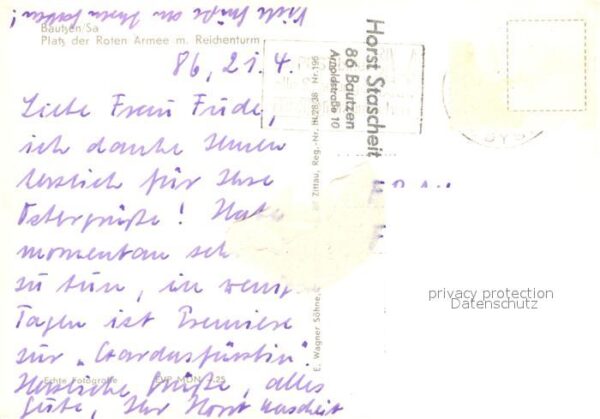 Viele Grüße an Ihren Gatten!
Bautzen/Sa
Platz der Roten Armee m. Reichenturm
86, 21. 4.
Liebe Frau Fude,
ich danke Ihnen
herzlich für Ihre
Ostergrüße! Habe
momentan
zu tun, in
Tagen ist Premiere
zur „Czardasfürstin"
Herzliche Grüße, alles
Gute, Ihr Horst
Echte Fotografie
Horst Stascheit
86 Bautzen
Arnoldstraße 10
E. Wagner Söhne, Zittau, Reg.-Nr.
privacy protection
Datenschutz